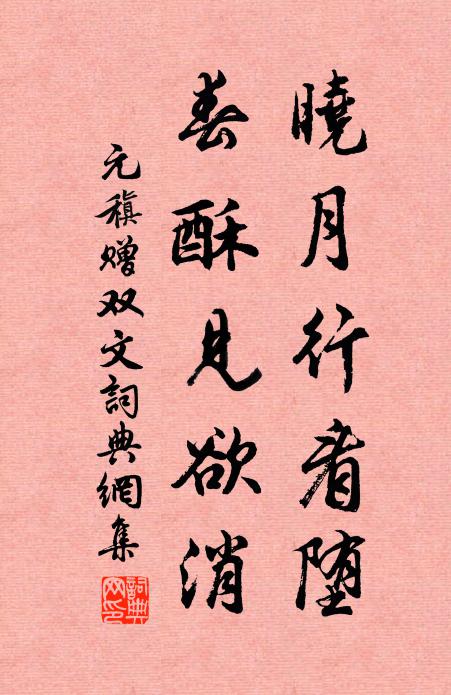 曉月行看堕
春酥見欲消
元稹赠双文詞典網集
詞典网印